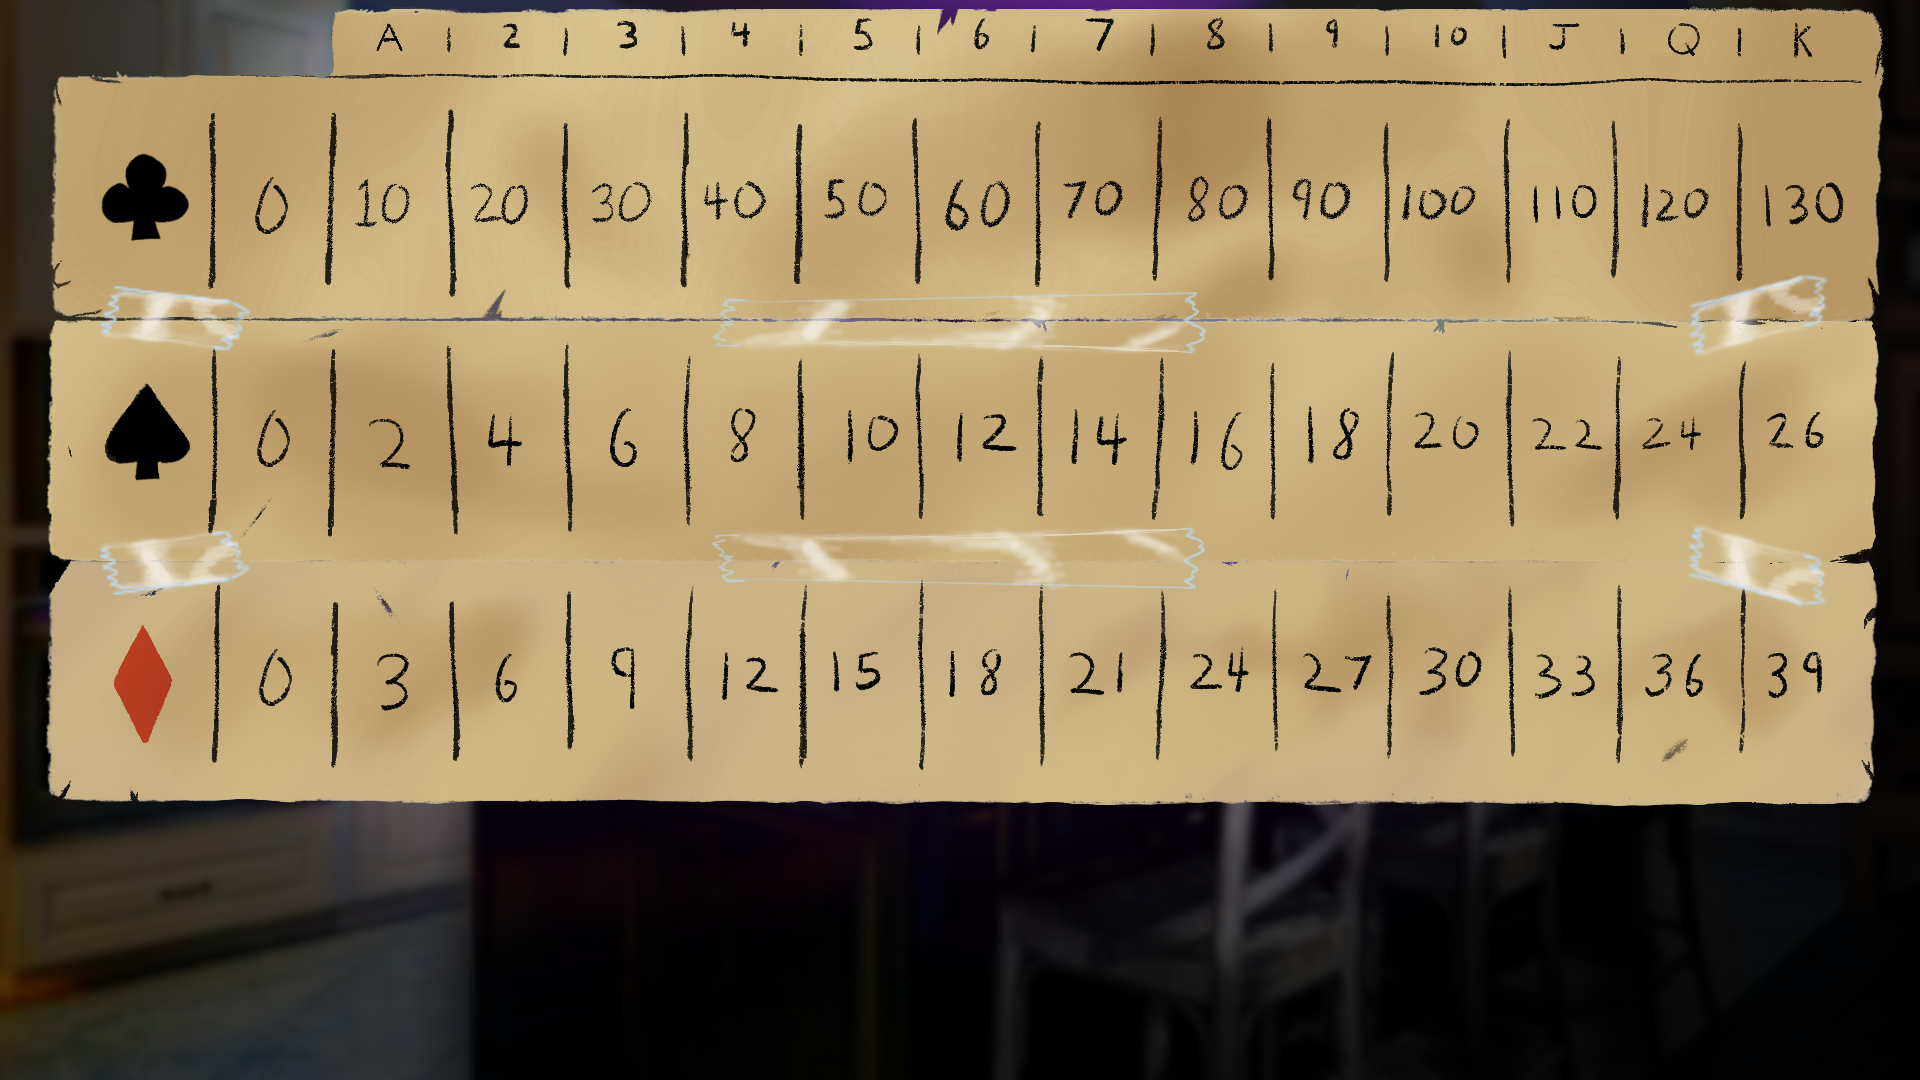 A | 2 | 3 | 4 | 5 | 6 | 7 | 8 | 9 | 10 | J | Q | K
♣ | 0 | 10 | 20 | 30 | 40 | 50 | 60 | 70 | 80 | 90 | 100 | 110 | 120 | 130
♠ | 0 | 2 | 4 | 6 | 8 | 10 | 12 | 14 | 16 | 18 | 20 | 22 | 24 | 26
♦ | 0 | 3 | 6 | 9 | 12 | 15 | 18 | 21 | 24 | 27 | 30 | 33 | 36 | 39